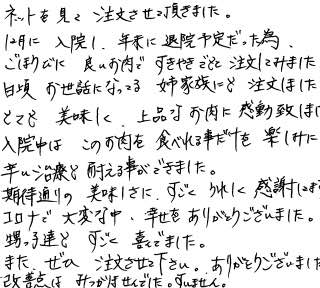 ネットを見て ご注文させて頂きました。
12月に 入院し、年末に退院予定だった為、
ごほうびに 良いお肉で すきやきごとご注文してみました
日頃 お世話になってる 姉家族にと 注文しました
とても 美味しく、上品なお肉に 感動致しま
入院中は このお肉を 食べれる事だけを 楽しみに
辛い治療と耐える事ができました。
期待通りの 美味しさに すごく うれしく 感謝します
コロナで 大変な中、幸せを ありがとうございました。
甥っ子達も すごく 喜んでました。
また、ぜひ 注文させて下さい。ありがとうございまし
改善点は みつかりませんでした。すいません。